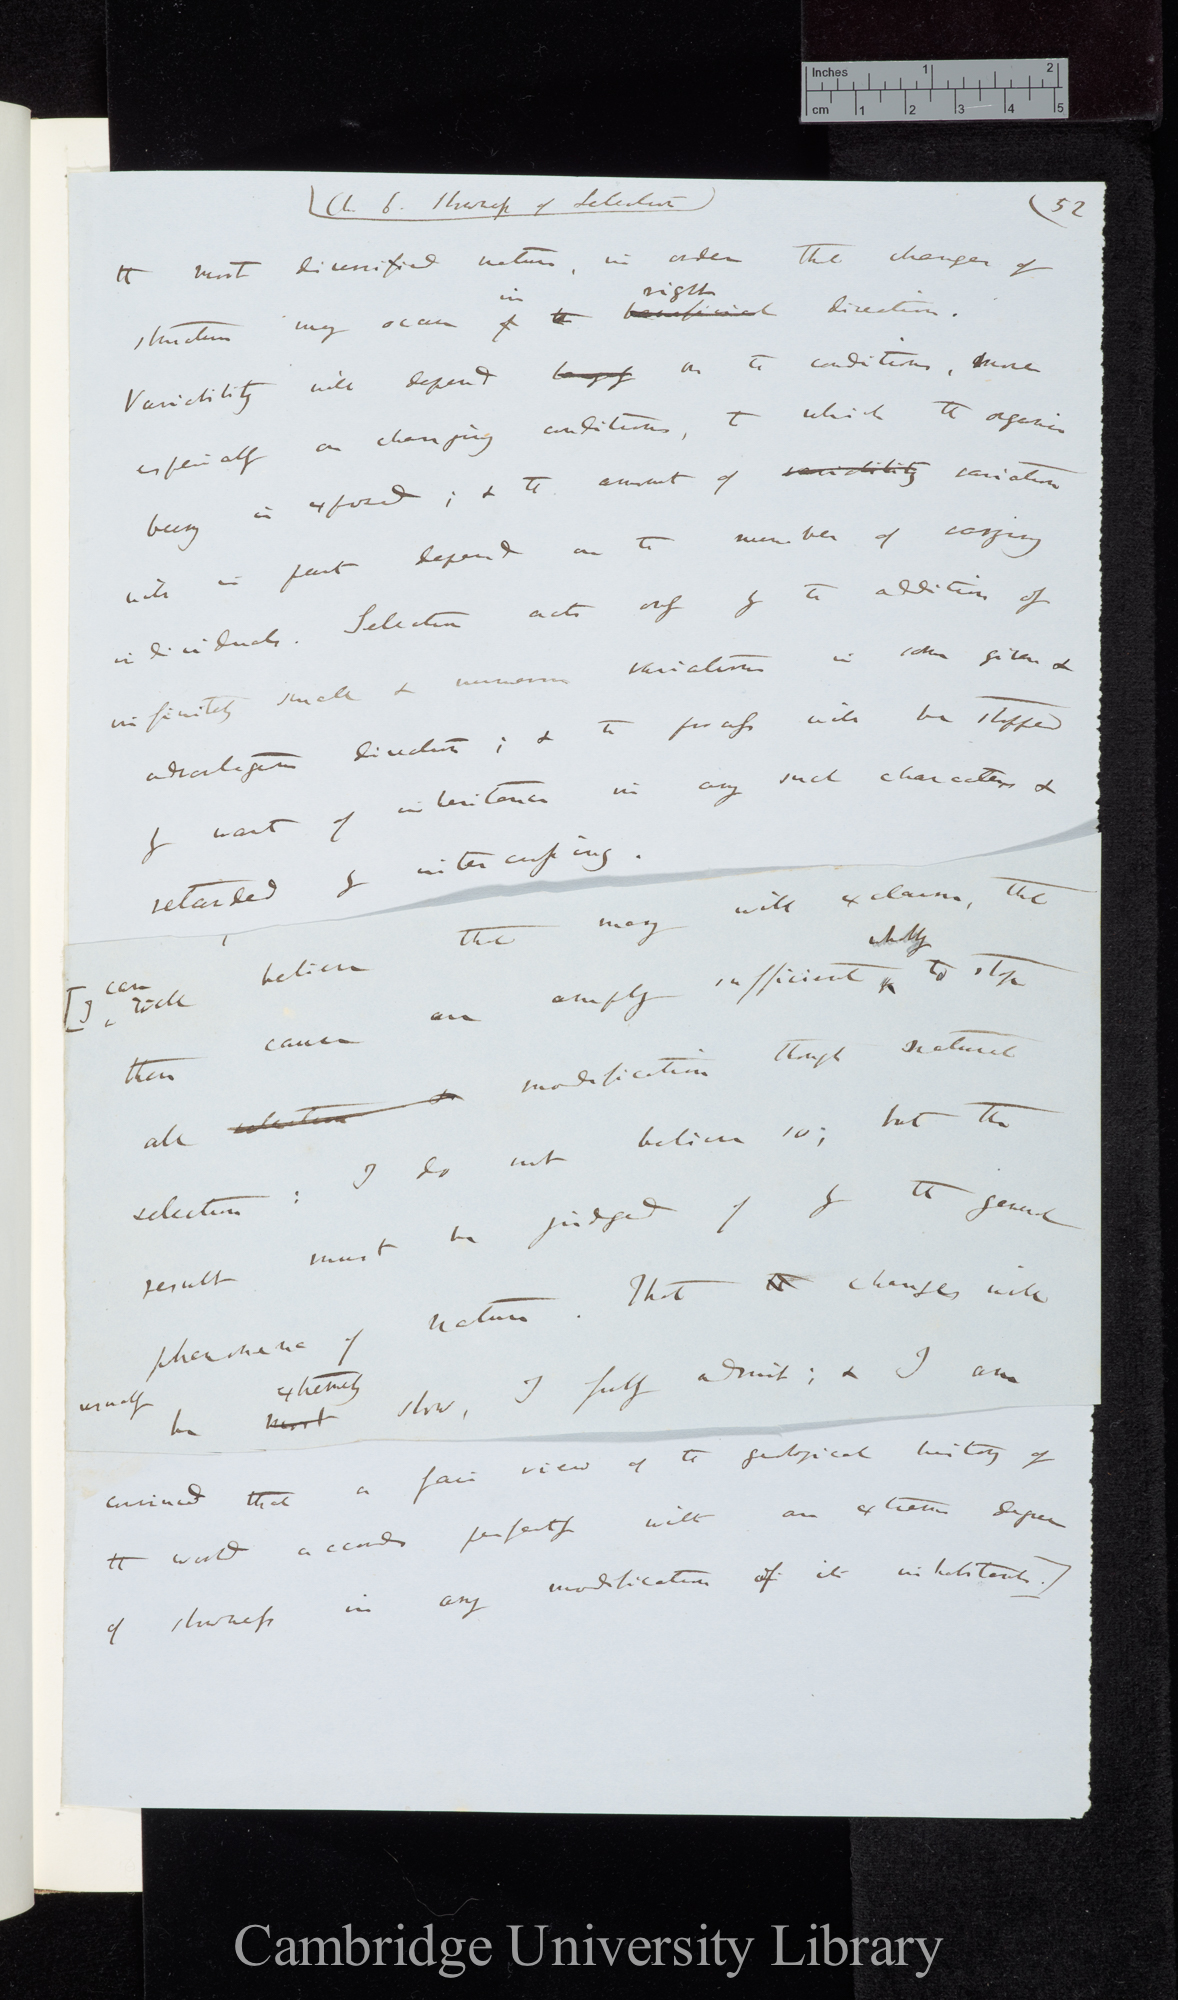 Inches 1 2
cm 1 2 3 4 5
(Ch. 6. Slowness of Selection)
(52
the most diversified nature, in order that changes of
in right
structure may occur of the beneficial direction.
Variability will depend largely on the conditions, more
especially on changing conditions, to which the organic
being is exposed; & the amount of variability variation
will in part depend on the number of varying
individuals. Selection acts only by the addition of
infinitely small & numerous variations in some given &
advantageous direction; & the process will be stopped
by want of inheritance in any such characters &
retarded by intercrossing.
can
[I believe that many will exclaim, that
wholly
these causes are amply sufficient to stop
all selection & modification through natural
selection: I do not believe so; but the
result must be judged of by the general
phenomena of nature. That the changes will
usually extremely
be most slow, I fully admit; & I am
convinced that a fair view of the geological history of
the world accords perfectly with an extreme degree
of slowness in any modification of its inhabitants.]
Cambridge University Library